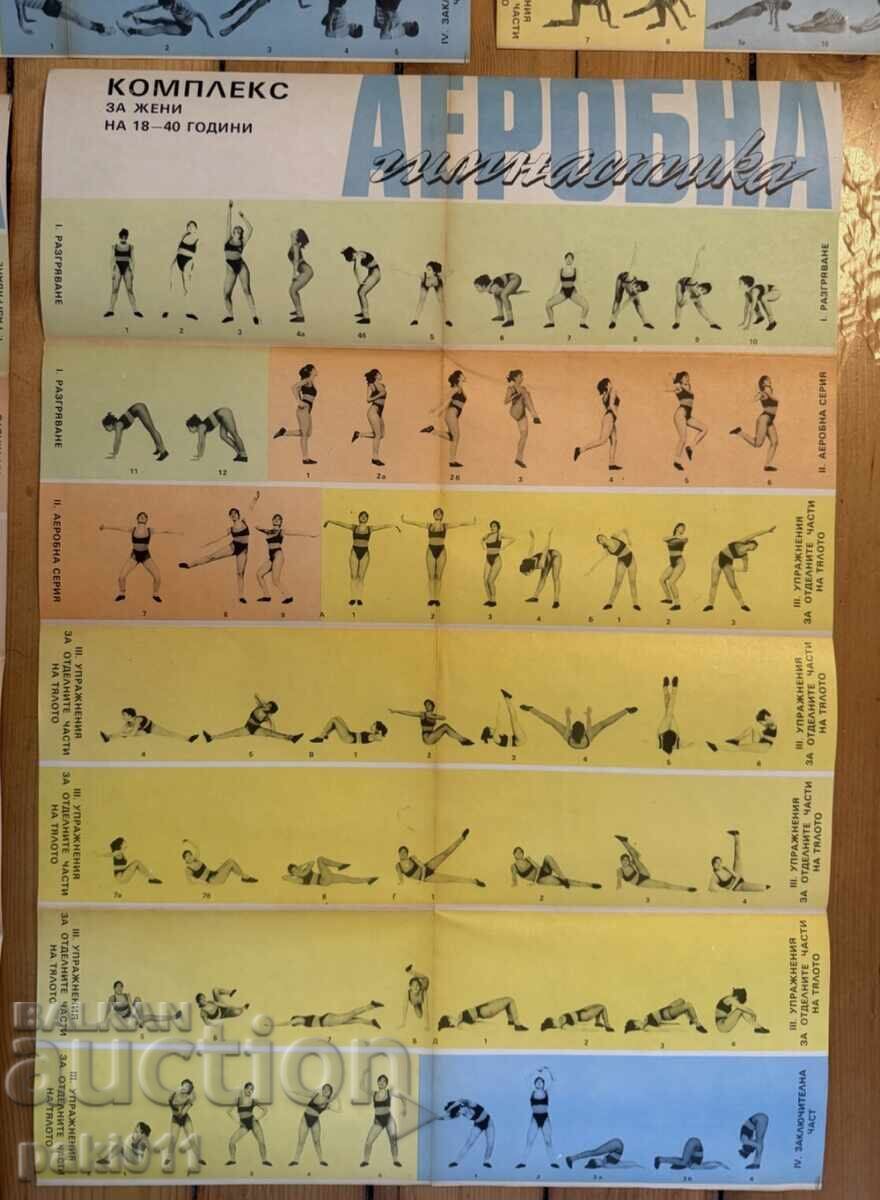 1
2
3
4
5
IV. ЗАКЛ
7
8
9а
10
ЧАСТИ
КОМПЛЕКС
ЗА ЖЕНИ
НА 18—40 ГОДИНИ
АЕРОБНА
гимнастика
I. РАЗГРЯВАНЕ
1
2
3
4а
4б
5
6
7
8
9
10
I. РАЗГРЯВАНЕ
I. РАЗГРЯВАНЕ
11
12
1
2а
2б
3
4
5
6
II. АЕРОБНА СЕРИЯ
II. АЕРОБНА СЕРИЯ
7
8
9
А
1
2
3
4
Б
1
2
3
III. УПРАЖНЕНИЯ
ЗА ОТДЕЛНИТЕ ЧАСТИ
НА ТЯЛОТО
III. УПРАЖНЕНИЯ
ЗА ОТДЕЛНИТЕ ЧАСТИ
НА ТЯЛОТО
4
5
В
1
2
3
4
5
6
III. УПРАЖНЕНИЯ
ЗА ОТДЕЛНИТЕ ЧАСТИ
НА ТЯЛОТО
III. УПРАЖНЕНИЯ
ЗА ОТДЕЛНИТЕ ЧАСТИ
НА ТЯЛОТО
7а
7б
8
Г
1
2
3
4
III. УПРАЖНЕНИЯ
ЗА ОТДЕЛНИТЕ ЧАСТИ
НА ТЯЛОТО
III. УПРАЖНЕНИЯ
ЗА ОТДЕЛНИТЕ ЧАСТИ
НА ТЯЛОТО
5
6
7
8
Д
1
2
3
4
III. УПРАЖНЕНИЯ
ЗА ОТДЕЛНИТЕ ЧАСТИ
НА ТЯЛОТО
III. УПРАЖНЕНИЯ
ЗА ОТДЕЛНИТЕ ЧАСТИ
НА ТЯЛОТО
1
2
3а
3б
4
IV. ЗАКЛЮЧИТЕЛНА
ЧАСТ
BALKAN
auction
paki911